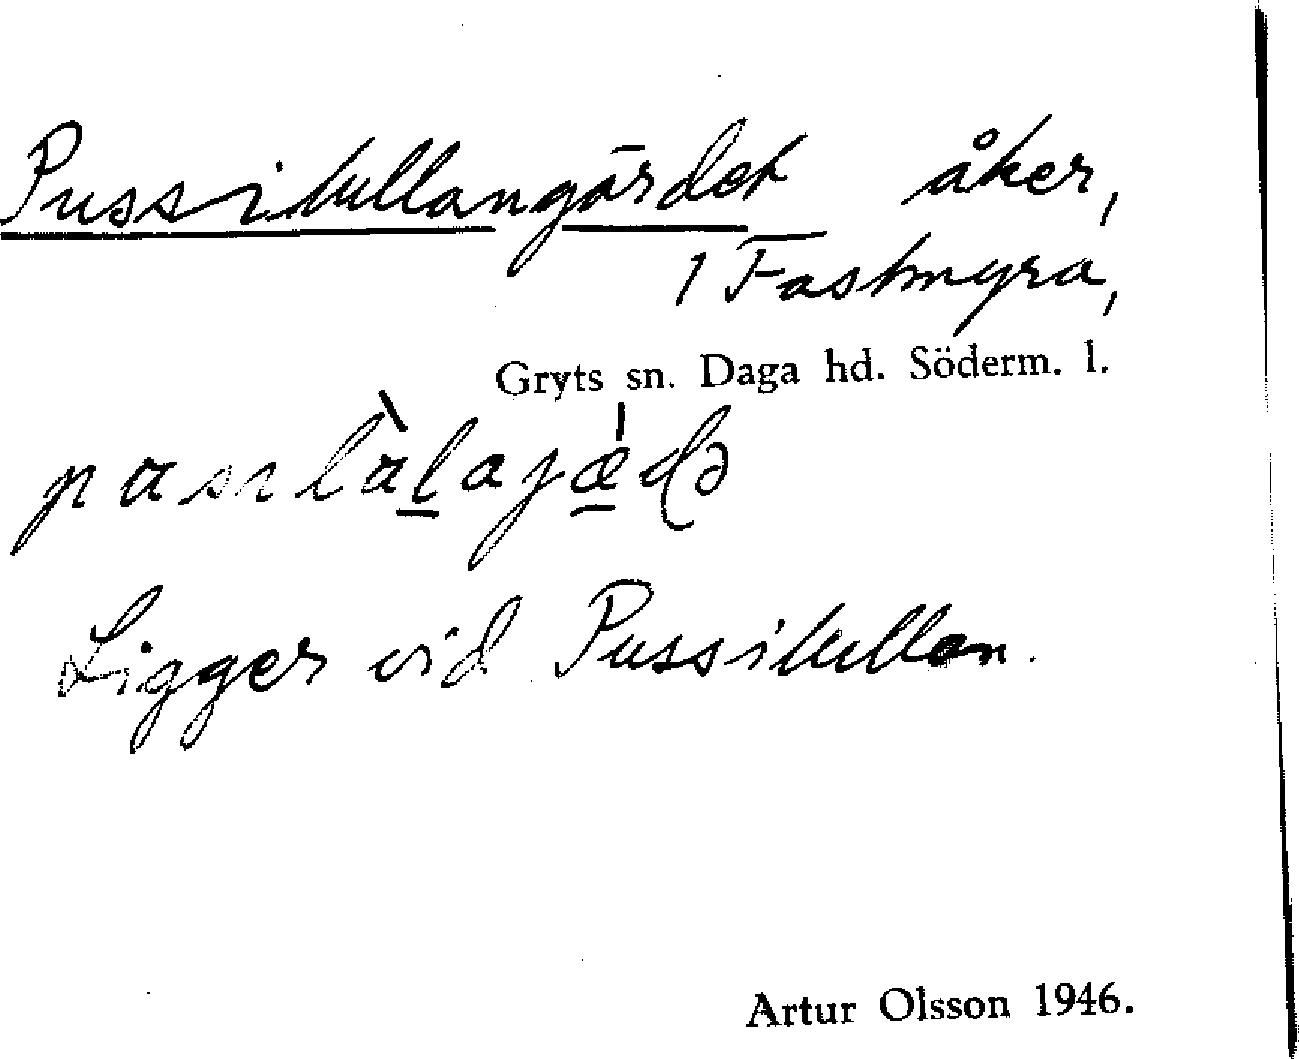 Pussikullangärdet åker,
1 Fastmyra,
Gryts sn. Daga hd. Söderm. l.
Ligger vid Pussikullan.
Artur Olsson 1946.